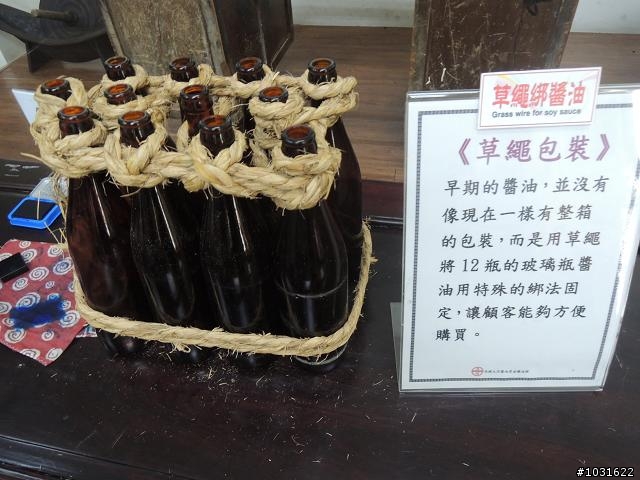 草繩綁醬油
Grass wire for soy sauce
《草繩包裝》
早期的醬油，並沒有
像現在一樣有整箱
的包裝，而是用草繩
將12瓶的玻璃瓶醬
油用特殊的綁法固
定，讓顧客能夠方便
購買。
#1031622